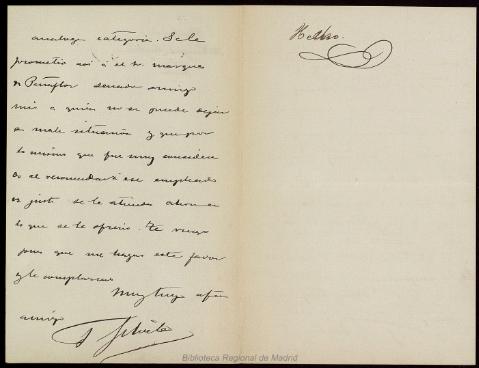 analoga categoria. Se le
prometio asi á el Sr. marques
de Peñaflor amigo
mio a quien no se puede dejar
en mala situacion y que por
lo mismo que fue muy
al recomendar á ese empleado
es justo se le atienda ahora en
lo que se le ofrecio. Te ruego
pues que me hagas este favor
y le complazcas
Muy tuyo afmo
amigo
Biblioteca Regional de Madrid